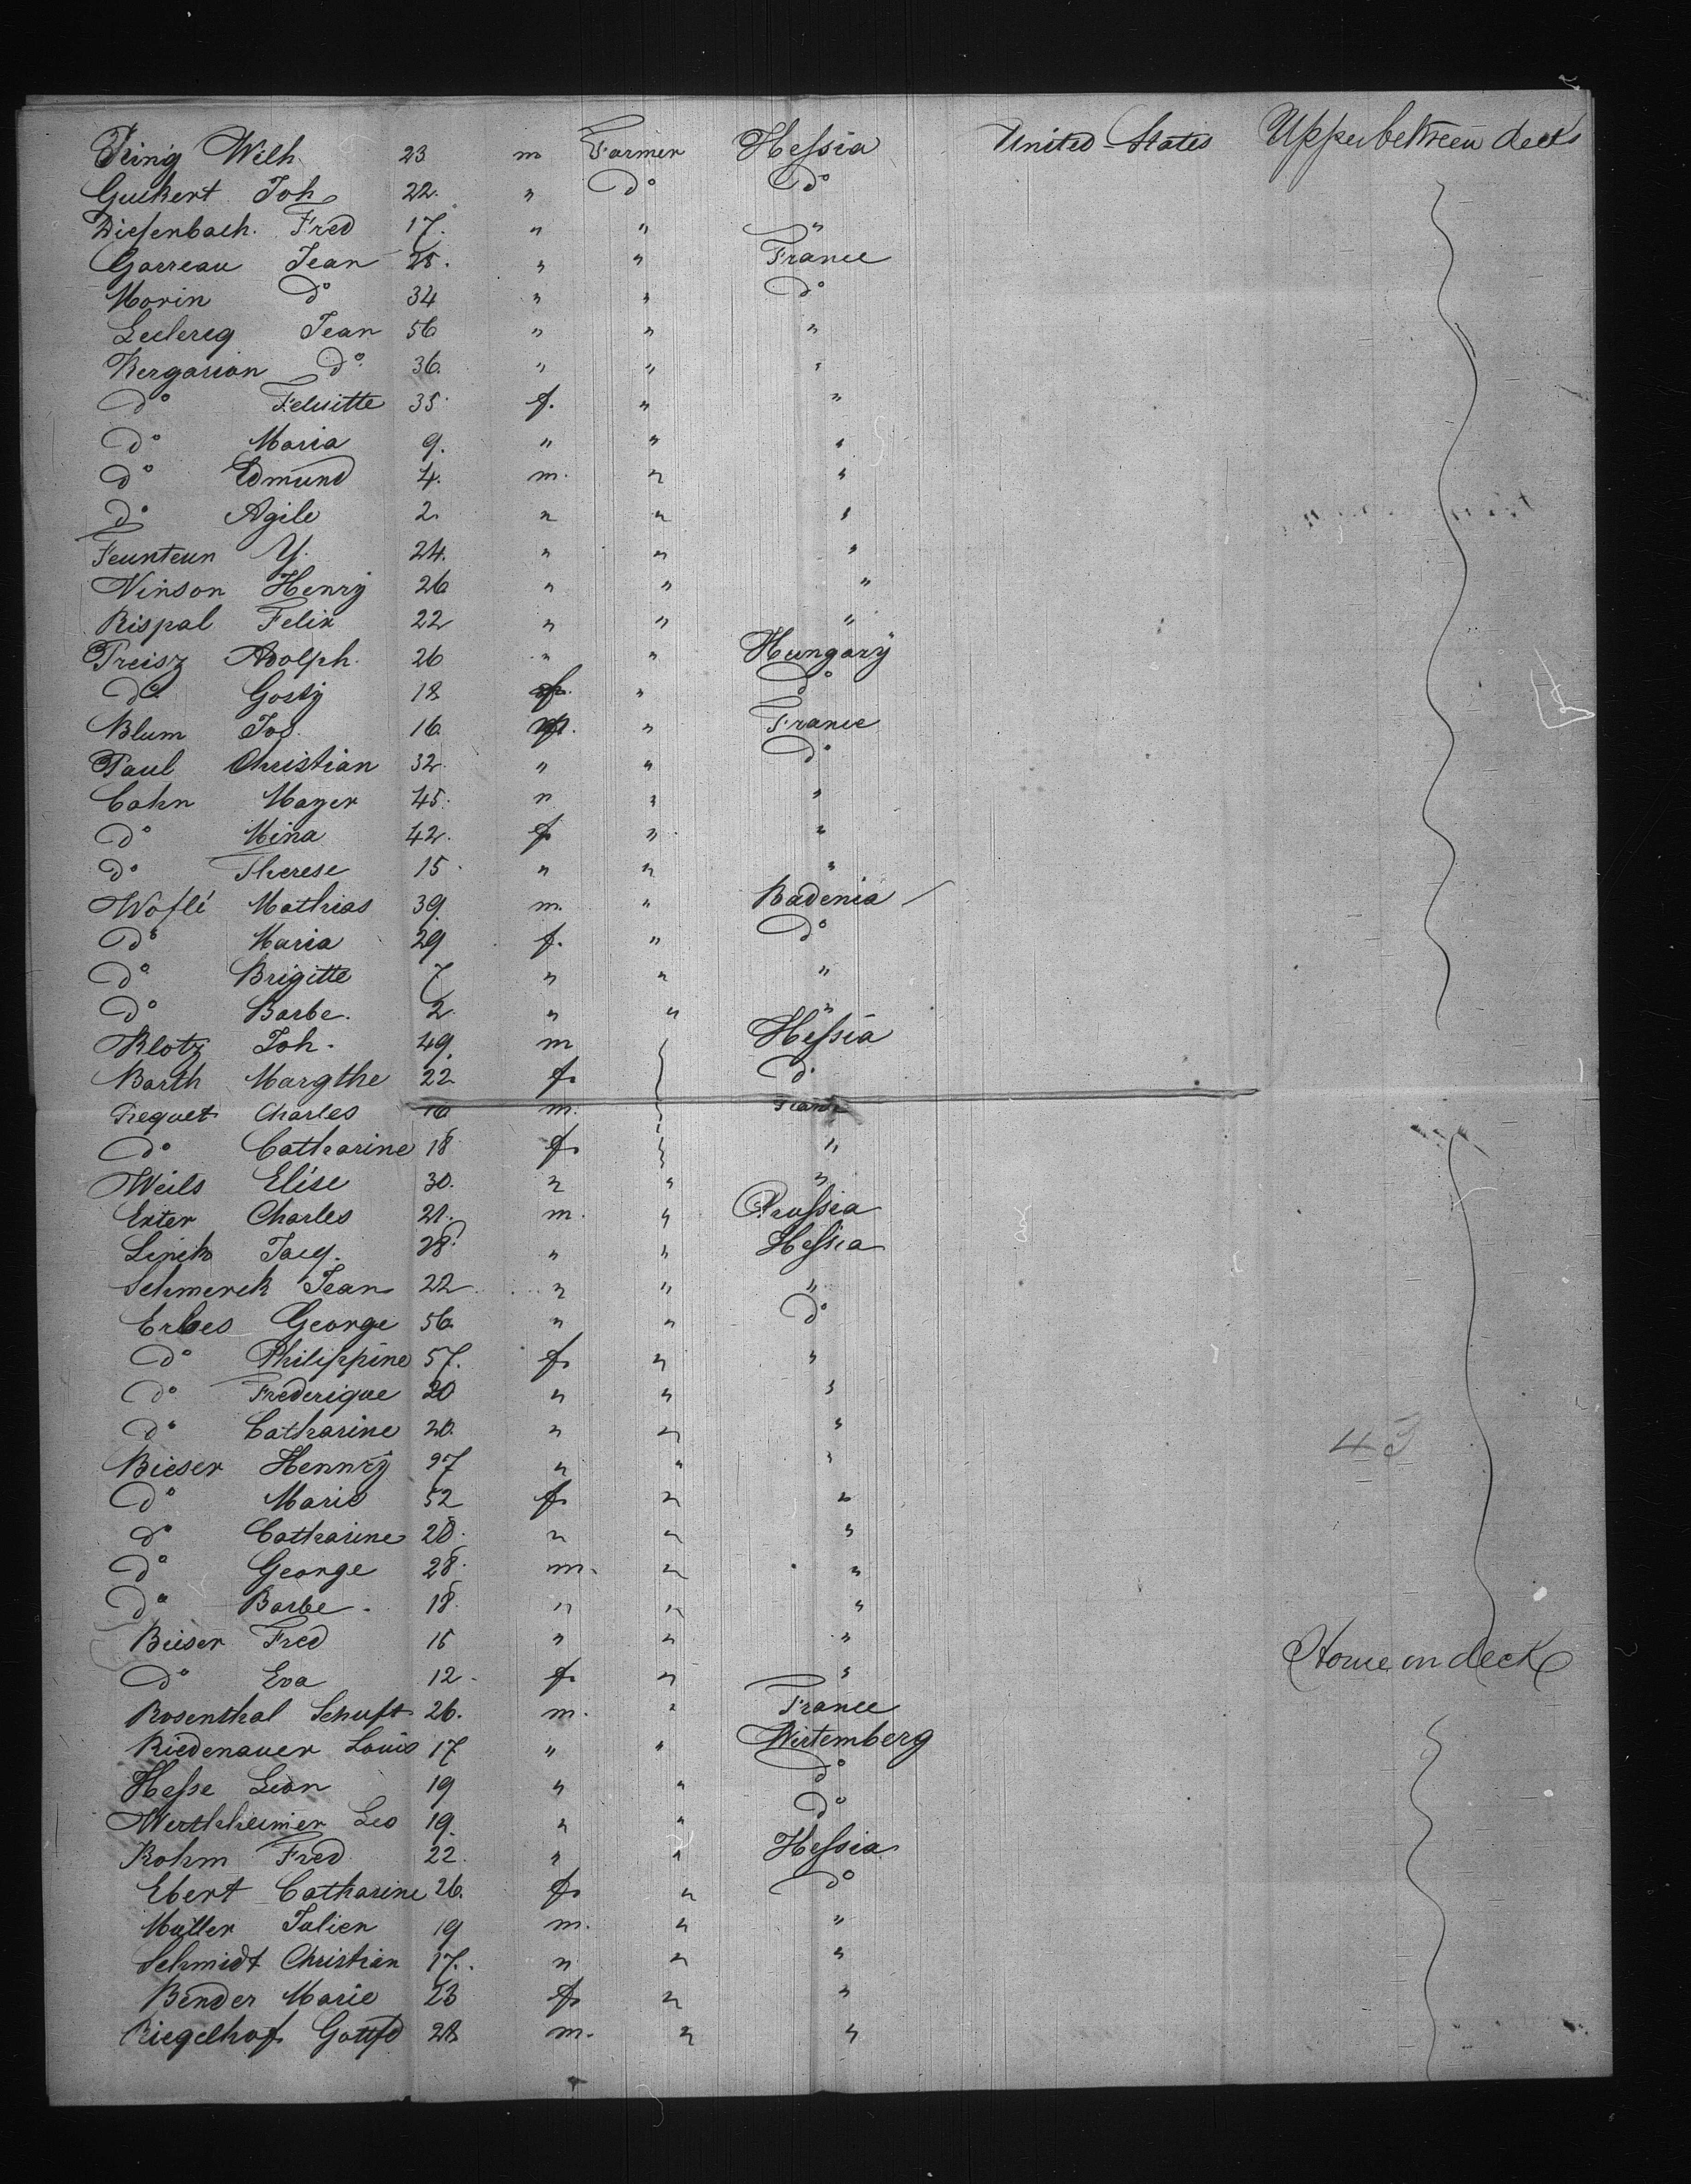 Ring Wilh. 23 m Farmer Hessia United States Upper between decks
Guckert Joh 22. " do do
Diefenbach. Fred 17. " " "
Garreau Jean 25. " " France
Morin do 34 " " do
Leclercq Jean 56 " " "
Kergarian do 36. " " "
do Felicitte 35 f. " "
do Maria 9. " " "
do Edmund 4. m. " "
do Agile 2. " " "
Feunteun Y. 24. " " "
Vinson Henry 26 " " "
Rispal Felix 22 " " "
Preisz Adolph. 26 " " Hungary
do Gosty 18 f. " do
Blum Jos. 16. m. " France
Paul Christian 32. " " do
Cahn Mayer 45. " " "
do Mina 42. f " "
do Therese 15. " " "
Wofli Mathias 39. m. " Badenia
do Maria 29 f. " do
do Brigitte 7 " " "
do Barbe. 2 " " "
Klotz Joh. 49. m Hessia
Barth Margthe 22 f. do
Piequet Charles 16 m.
do Catharine 18 f. "
Weils Elise 30. " " "
Exter Charles 21. m. " Prussia
Linck Jacq. 28. " " Hessia
Schmerck Jean 22 " " "
Erbes George 56. " " do
do Philippine 57. f. " "
do Frederique 20 " " "
do Catharine 20. " " "
Bieser Hennry 97 " " "
do Marie 52 f. " "
do Catharine 20. " " "
do George 28. m. " "
do Barbe. 18. " " "
Beiser Fred 15 " " "
do Eva 12. f. " "
House on deck
Rosenthal Schuft 26. m. " France
Riedenauer Louis 17 " " Wirtemberg
Hesse Leon 19 " " do
Werthheimer Leo 19. " " do
Rohm Fred 22. " " Hessia
Ebert Catharine 26. f. " do
Muller Julien 19 m. " "
Schmidt Christian 17. " " "
Bender Marie 23 f. " "
Riegelhof Gottfd 28 m. " "
43